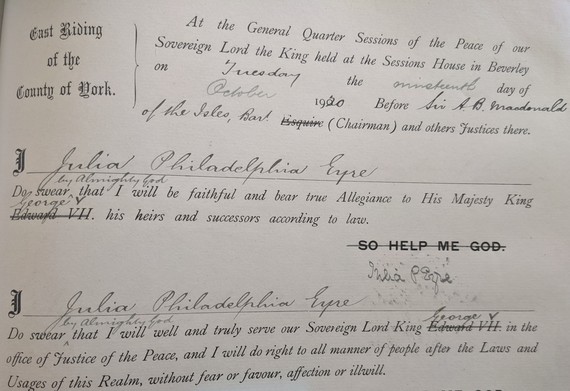 East Riding
of the
County of York.
At the General Quarter Sessions of the Peace of our
Sovereign Lord the King held at the Sessions House in Beverley
on Tuesday the nineteenth day of
October 1920 Before Sir A. B. Macdonald
of the Isles, Bart. Esquire (Chairman) and others Justices there.
I Julia Philadelphia Eyre
by Almighty God
Do swear that I will be faithful and bear true Allegiance to His Majesty King
George V
Edward VII. his heirs and successors according to law.
SO HELP ME GOD.
Julia P Eyre
I Julia Philadelphia Eyre
by Almighty God George V
Do swear that I will well and truly serve our Sovereign Lord King Edward VII. in the
office of Justice of the Peace, and I will do right to all manner of people after the Laws and
Usages of this Realm, without fear or favour, affection or illwill.